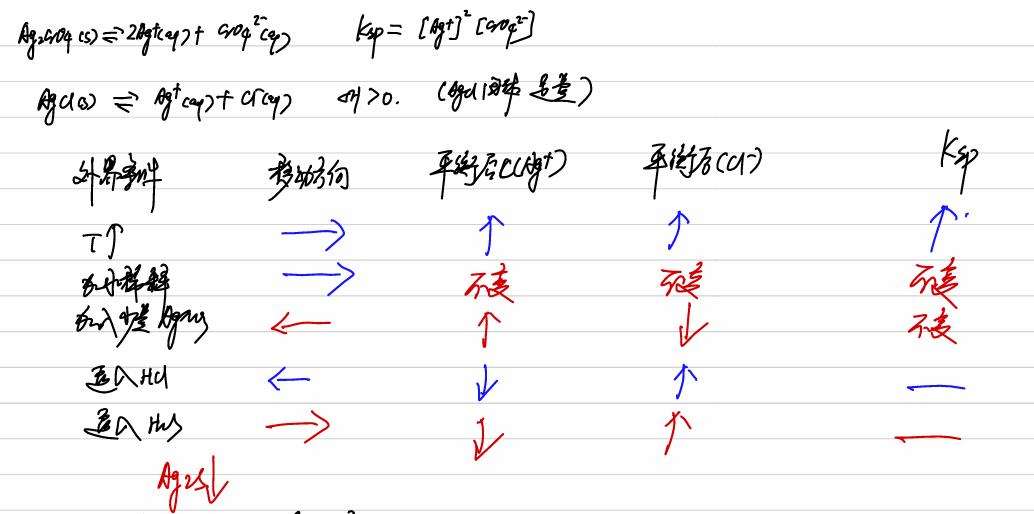 Ag₂CrO₄(s) ⇌ 2Ag⁺(aq) + CrO₄²⁻(aq) Ksp = [Ag⁺]² [CrO₄²⁻]
AgCl(s) ⇌ Ag⁺(aq) + Cl⁻(aq) ΔH > 0. (AgCl固体 足量)
外界条件 移动方向 平衡后C(Ag⁺) 平衡后C(Cl⁻) Ksp
T↑ → ↑ ↑ ↑
加水稀释 → 不变 不变 不变
加入少量 AgNO₃ ← ↑ ↓ 不变
通入HCl ← ↓ ↑ —
通入H₂S → ↓ ↑ —
Ag₂S↓